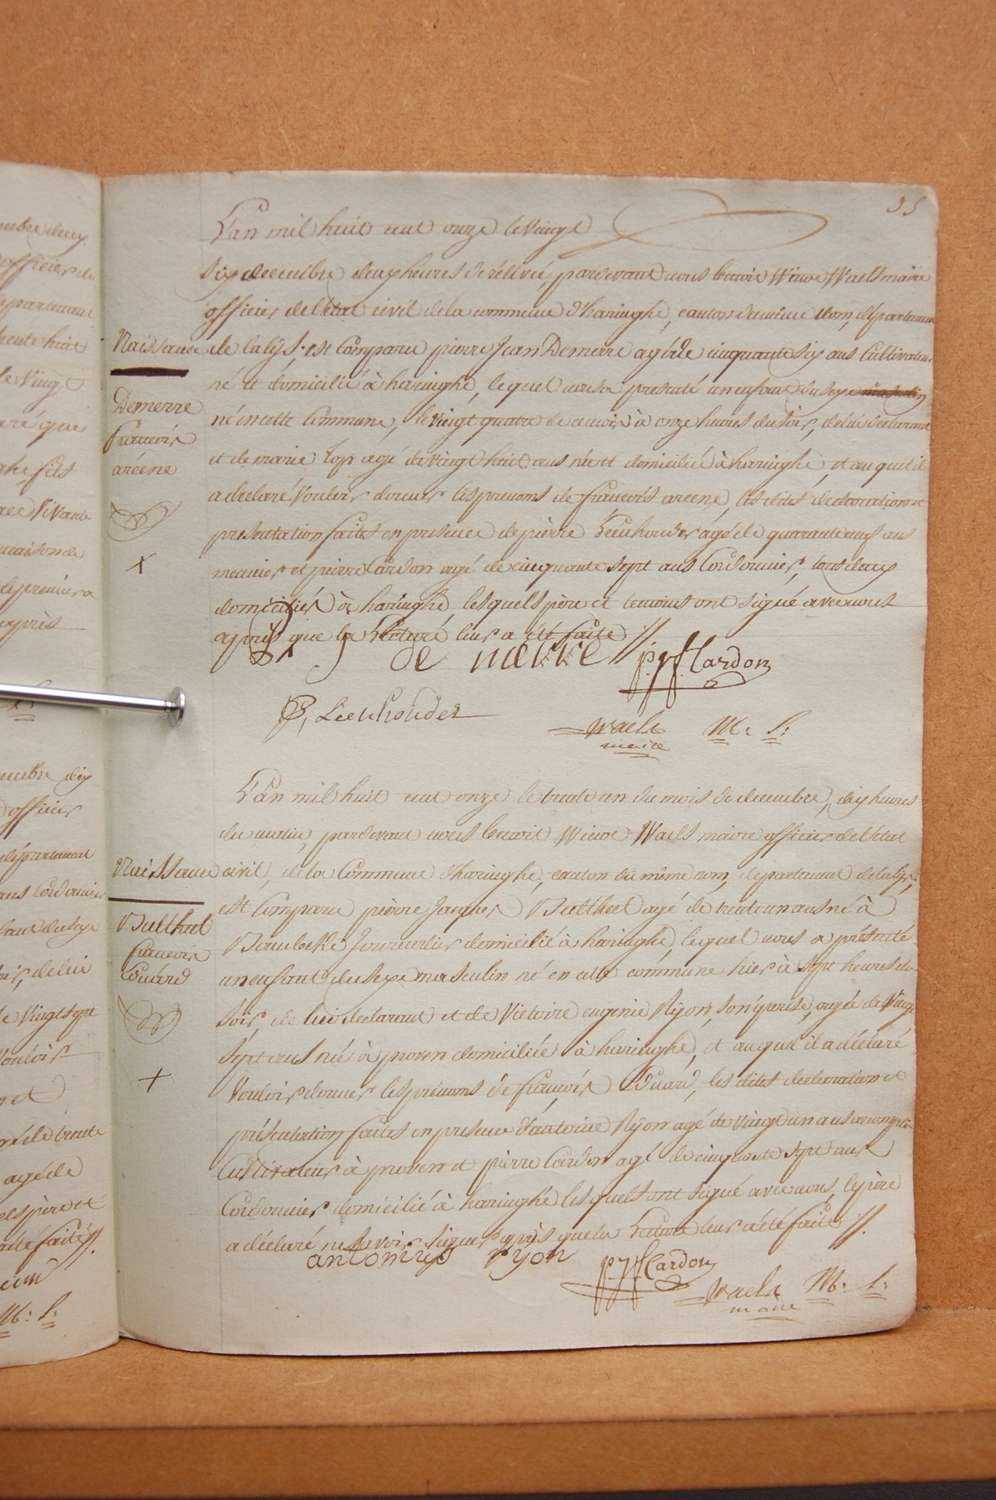 35
L'an mil huit cent onze le vingt
six decembre deux heures de rélévé, pardevant nous benoit Winoc Waels maire
officier de l'état civil de la commune d'haringhe, canton du même nom, département
Naissance de la lys est comparu pierre Jean Demerre agé de cinquante six ans Cultivateur
né et domicilié à haringhe, lequel nous a presenté un enfant du sexe masculin
Demerre
francois
arcene
né en cette Commune, le vingt quatre de ce mois à onze heures du soir, de lui declarant
et de marie agé de vingt huit ans née et domicilié à haringhe, et auquel il
a declaré vouloir donner les prenoms de francois arcene, les dites declaration et
presentation faites en presence de pierre Leenhouder agé de quarante neuf ans
meunier et pierre Cardon agé de cinquante sept ans Cordonnier, tous deux
domiciliés à haringhe, lesquels père et temoins ont signé avec nous
après que la Lecture leur a été faite //.
P J de merre P. J. f. Cardon
P, Leenhouder
Waels M: S:
maire
L'an mil huit cent onze le trente un du mois de decembre, dix heures
du matin, pardevant nous benoit Winoc Waels maire officier de l'état
Naissance civil, de la Commune d'haringhe, canton du même nom, departement de la lys,
est Comparu pierre Jacques Bulthel agé de trente un ans né à
Bulthel
francois
Edouard
Journalier domicilié à haringhe, lequel nous a présenté
un enfant du sexe masculin né en cette commune hier à sept heures du
soir, de lui declarant et de Victoire eugenie Ryon, son epouse, agée de vingt
sept ans née à proven domiciliée à haringhe, et auquel il a déclaré
vouloir donner les prénoms de francois Eduard, les dites declaration et
présentation faites en presence d'antoine Ryon agé de vingt un ans
Cultivateur à proven et pierre Cardon agé de cinquante sept ans
Cordonnier domicilié à haringhe lesquels ont signé avec nous, le père
a déclaré ne savoir signer après que la Lecture leur a été faite //.
antonius ryon P. J. f. Cardon
Waels M: S:
maire